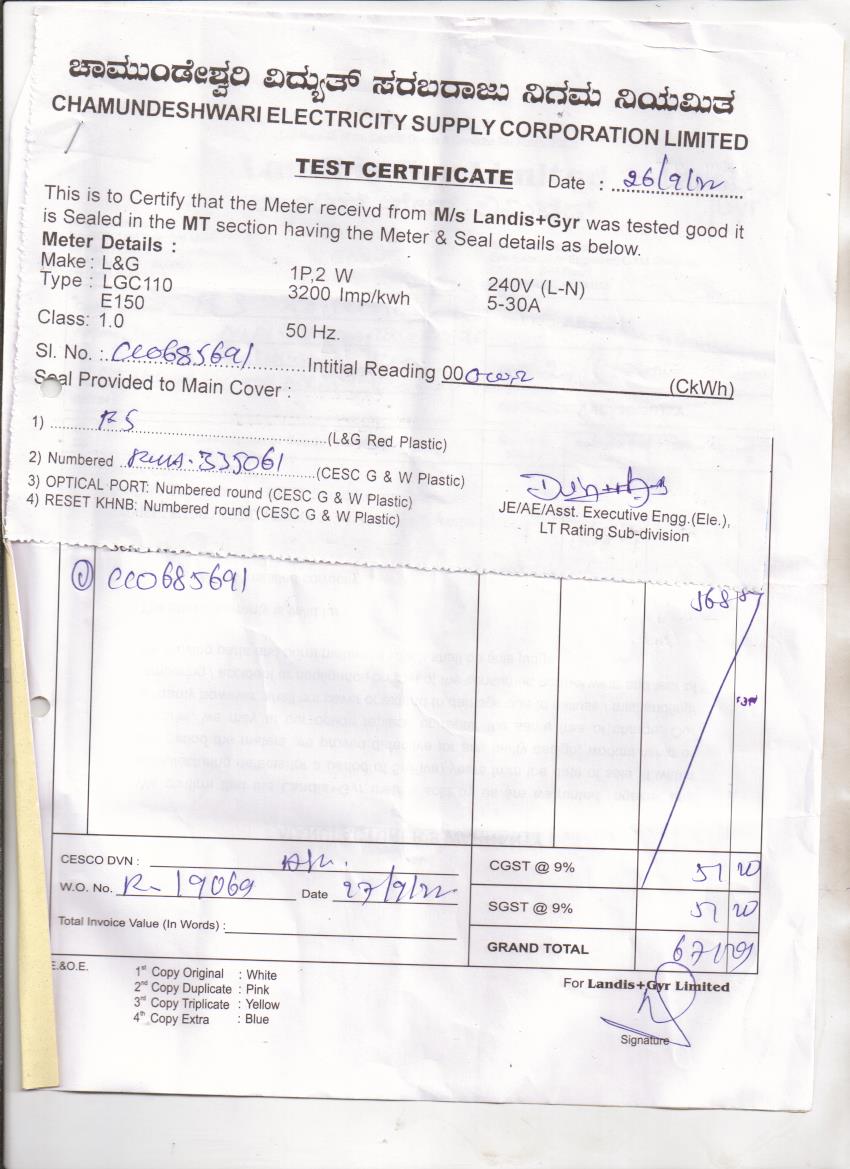 ಚಾಮುಂಡೇಶ್ವರಿ ವಿದ್ಯುತ್ ಸರಬರಾಜು ನಿಗಮ ನಿಯಮಿತ
CHAMUNDESHWARI ELECTRICITY SUPPLY CORPORATION LIMITED
TEST CERTIFICATE Date : 26/9/22
This is to Certify that the Meter receivd from M/s Landis+Gyr was tested good it
is Sealed in the MT section having the Meter & Seal details as below.
Meter Details :
Make : L&G 1P,2 W 240V (L-N)
Type : LGC110 3200 Imp/kwh 5-30A
E150
Class: 1.0 50 Hz.
Sl. No. : CC0685691 Intitial Reading 00 (CkWh)
Seal Provided to Main Cover :
1) RS (L&G Red Plastic)
2) Numbered 335061 (CESC G & W Plastic)
3) OPTICAL PORT: Numbered round (CESC G & W Plastic)
4) RESET KHNB: Numbered round (CESC G & W Plastic)
JE/AE/Asst. Executive Engg.(Ele.),
LT Rating Sub-division
① CC0685691
CESCO DVN : CGST @ 9% 51 20
W.O. No. R-19069 Date 27/9/22 SGST @ 9% 51 20
Total Invoice Value (In Words) : GRAND TOTAL 671
E.&O.E.
For Landis+Gyr Limited
1st Copy Original : White
2nd Copy Duplicate : Pink
3rd Copy Triplicate : Yellow
4th Copy Extra : Blue
Signature